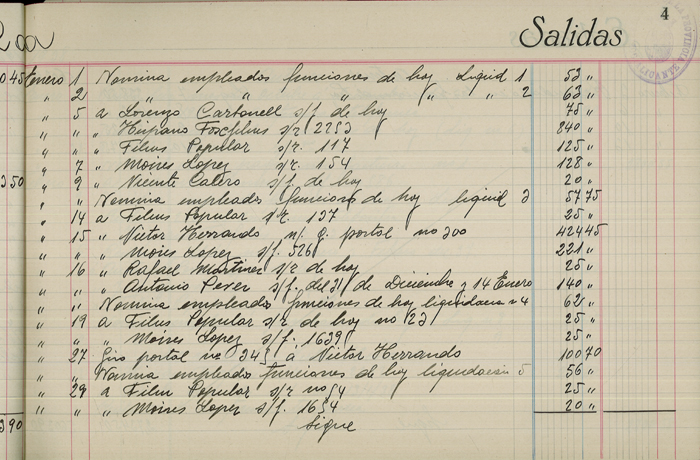 4
Salidas
0,45 Enero 1 Nomina empleados funciones de hoy Liquid 1 53 "
" 2 " " " " " 2 63 "
" 5 a Lorenzo Carbonell s/f. de hoy 75 "
" " " Hispano Foxfilms s/r 2253 840 "
" " " Films Popular s/r. 117 125 "
" 7 " Moises Lopez s/r. 154 128 "
350 " 9 " Vicente Catero s/f. de hoy 20 "
" " Nomina empleados funciones de hoy liquid 3 57 75
" 14 a Films Popular s/r. 127 25 "
" 15 " Victor Herrando n/. g. postal no 200 424 45
" " " Moises Lopez s/f. 526 221 "
" 16 " Rafael Martinez s/r de hoy 25 "
" " " Antonio Peser s/f. del 31 de Diciembre y 14 Enero 140 "
" " Nomina empleados funciones de hoy liquidacion n 4 62 "
" 19 a Films Popular s/r. de hoy no 231 25 "
" " " Moises Lopez s/f. 1639 25 "
" 27 Giro postal no 245 a Victor Herrando 100 70
" " Nomina empleados funciones de hoy liquidacion 5 56 "
" 29 a Films Popular s/r no 54 25 "
" " " Moises Lopez s/f. 1654 20 "
390 Sigue